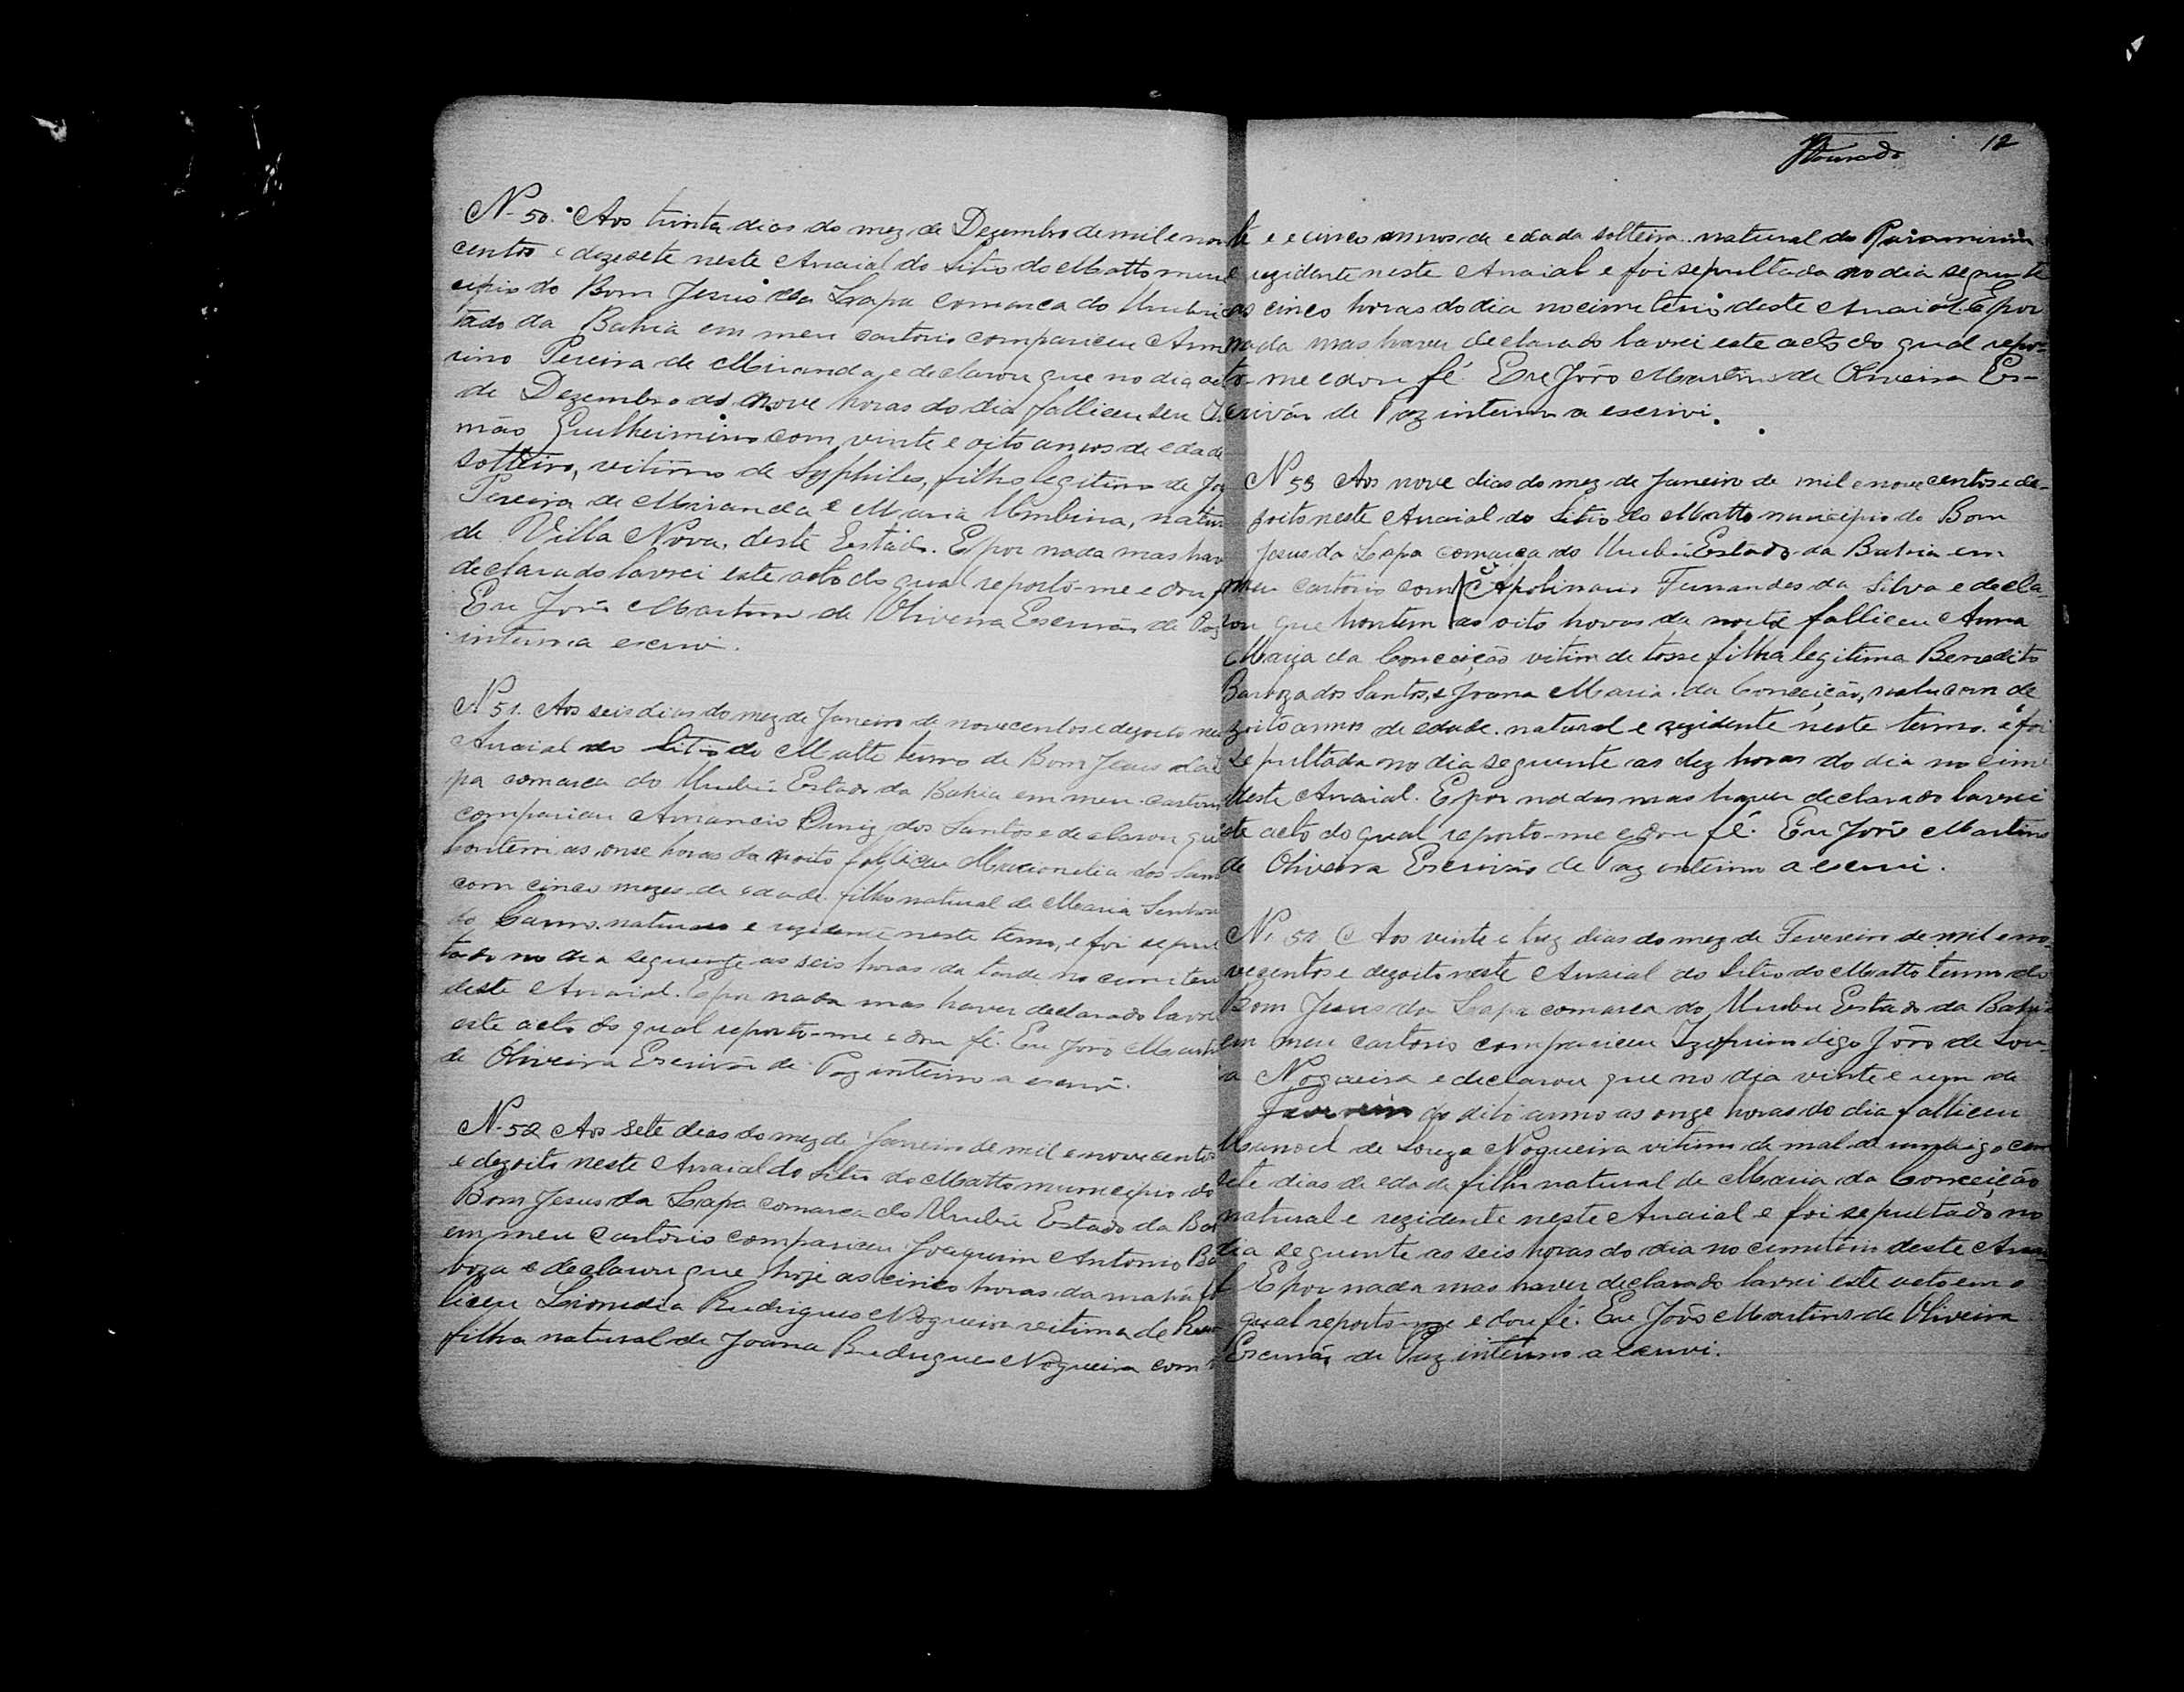 N. 50. Aos trinta dias do mez de Dezembro de mil e nove
centos e dezesete neste Arraial do Sitio do Matto muni
cipio do Bom Jesus da Lapa comarca do Urubú
tado da Bahia em meu cartorio compareceu
rino Pereira de Miranda, e declarou que no dia
de Dezembro as nove horas do dia falliceu seu
mão Guilhermino com vinte e oito annos de edade
solteiro, vitimo de Syphiles, filho legitimo de
Pereira de Miranda e Maria Umbina, natur
de Villa Nova, deste Estado. E por nada mas hav
declarado lavrei este acto do qual reporto-me e dou f
Eu João Martins de Oliveira Escrivão de Paz
interino a escrivi.
N 51. Aos seis dias do mez de Janeiro de novecentos e dezoito nes
Arraial do Sitio do Matto termo de Bom Jesus da
pa comarca do Urubú Estado da Bahia em meu cartorio
compareceu Amancio Diniz dos Santos e declarou que
hontem as onse horas da noite falliceu dos San
com cinco mezes de edade filho natural de Maria Senhora
do Carmo. natural e rezidente neste termo, e foi sepul
tado no dia seguente as seis horas da tarde no cimiteri
deste Arraial. E por nada mas haver declarado lavrei
este acto do qual reporto-me e dou fé. Eu João Martins
de Oliveira Escrivão de Paz interino a escrivi.
N. 52 Aos sete dias do mez de Janeiro de mil e novecentos
e dezoito neste Arraial do Sitio do Matto municipio do
Bom Jesus da Lapa comarca do Urubú Estado da Bah
em meu cartorio compareceu Joaquim Antonio Ba
boza e declarou que hoje as cinco horas da manhã fa
liceu Leonidia Rudrigues Nogueira vitima de
filha natural de Joana Rudrigues Nogueira com
12
te e e cinco annos de edada solteira. natural do Paramirim
e rezidente neste Arraial e foi sepultada no dia seguente
as cinco horas do dia no cimeterio deste Arraial. E por
nada mas haver declarado lavrei este acto do qual repor-
to-me e dou fé. Eu João Martins de Oliveira Es-
crivão de Paz interino a escrivi.
N 53 Aos nove dias do mez de Janeiro de mil e nove centos e de-
zoito neste Arraial do Sitio do Matto municipio do Bom
Jesus da Lapa comarca do Urubú Estado da Bahia em
meu cartorio com Apolinario Fernandes da Silva e decla-
rou que hontem as oito horas da noite falliceu Anna
Maria da Conceição vitima de tosse filha legitima Benedito
Barboza dos Santos, e Joana Maria da Conceição, com de
zoito annos de edade. natural e rezidente neste termo. e foi
sepultada no dia seguente as dez horas do dia no cime
deste Arraial. E por nada mas haver declarado lavrei
este acto do qual reporto-me e dou fé. Eu João Martins
de Oliveira Escrivão de Paz interino a escrivi.
Aos vinte e trez dias do mez de Fevereiro de mil e no-
vecentos e dezoito neste Arraial do Sitio do Matto termo do
Bom Jesus da Lapa comarca do Urubú Estado da Bahia
em meu cartorio compareceu digo João de Sou-
za Nogueira e declarou que no dia vinte e um de
Fevereiro do dito anno as onze horas do dia falliceu
Manoel de Souza Nogueira vitimo de mal de umbigo com
sete dias de edade filho natural de Maria da Conceição
natural e rezidente neste Arraial e foi sepultado no
dia seguente as seis horas do dia no cimiterio deste Arrai
l E por nada mas haver declarado lavrei este acto em o
qual reporto-me e dou fé. Eu João Martins de Oliveira
Escrivão de Paz interino a escrivi.